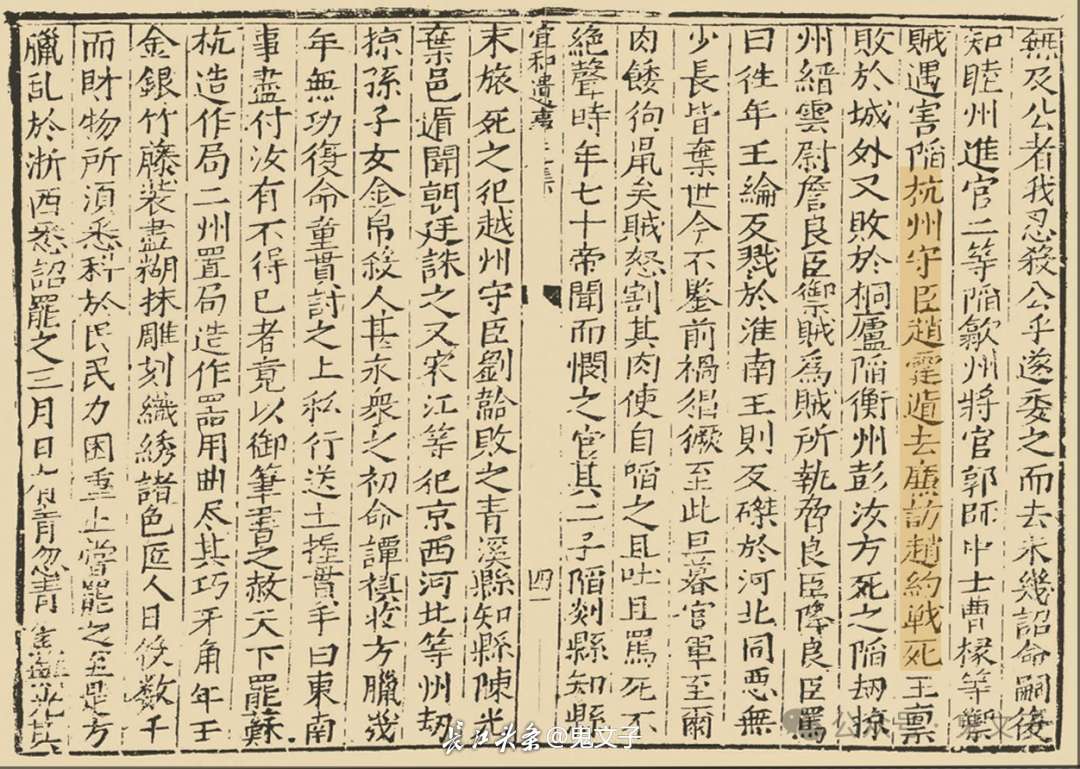 無及公者我忍殺公乎遂委之而去未幾詔命嗣復
知睦州進官二等陷歙州將官郭師中士曹椽等禦
賊遇害陷杭州守臣趙霆遁去廉訪趙約戰死王禀
敗於城外又敗於桐廬陷衡州彭汝方死之陷刧掠
州縉雲尉詹良臣禦賊爲賊所執脅良臣降良臣罵
曰徃年王綸反戮於淮南王則反磔於河北同惡無
少長皆棄世今不鑒前禍猖獗至此旦暮官軍至爾
肉餧狗鼠矣賊怒割其肉使自啗之且吐且罵死不
絶聲時年七十帝聞而憫之官其二子陷剡縣知縣
宣和遺事 集 四
末旅死之犯越州守臣劉韐敗之青溪縣知縣陳光
棄邑遁聞朝廷誅之又宋江等犯京西河北等州刧
掠孫子女金帛殺人甚衆之初命譚稹收方臘幾
年無功復命童貫討之上私行送土握貫手曰東南
事盡付汝有不得已者竟以御筆書之赦天下罷蘇
杭造作局二州置局造作器用曲尽其巧牙角年王
金銀竹藤装畫糊抹雕刻織綉諸色匠人日役数千
而財物所湏悉科於民民力困重上甞罷之至是方
臘乱於浙西悉詔罷之三月日有青忽青無光其
公众号
长江大条@鬼文子